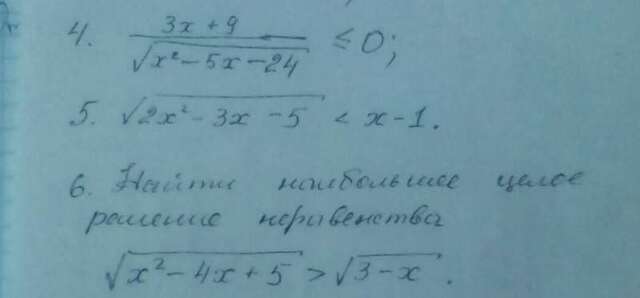 4. (3x + 9)/√(x² − 5x − 24) ≤ 0;
5. √(2x² − 3x − 5) < x − 1.
6. Найти наибольшее целое
решение неравенства
√(x² − 4x + 5) > √(3 − x).